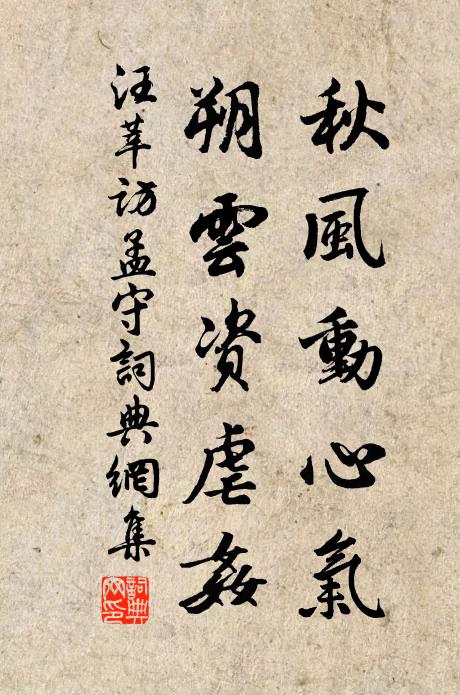 秋風動心氣
朔雲資虐姦
汪莘訪孟守詞典網集
詞典网印